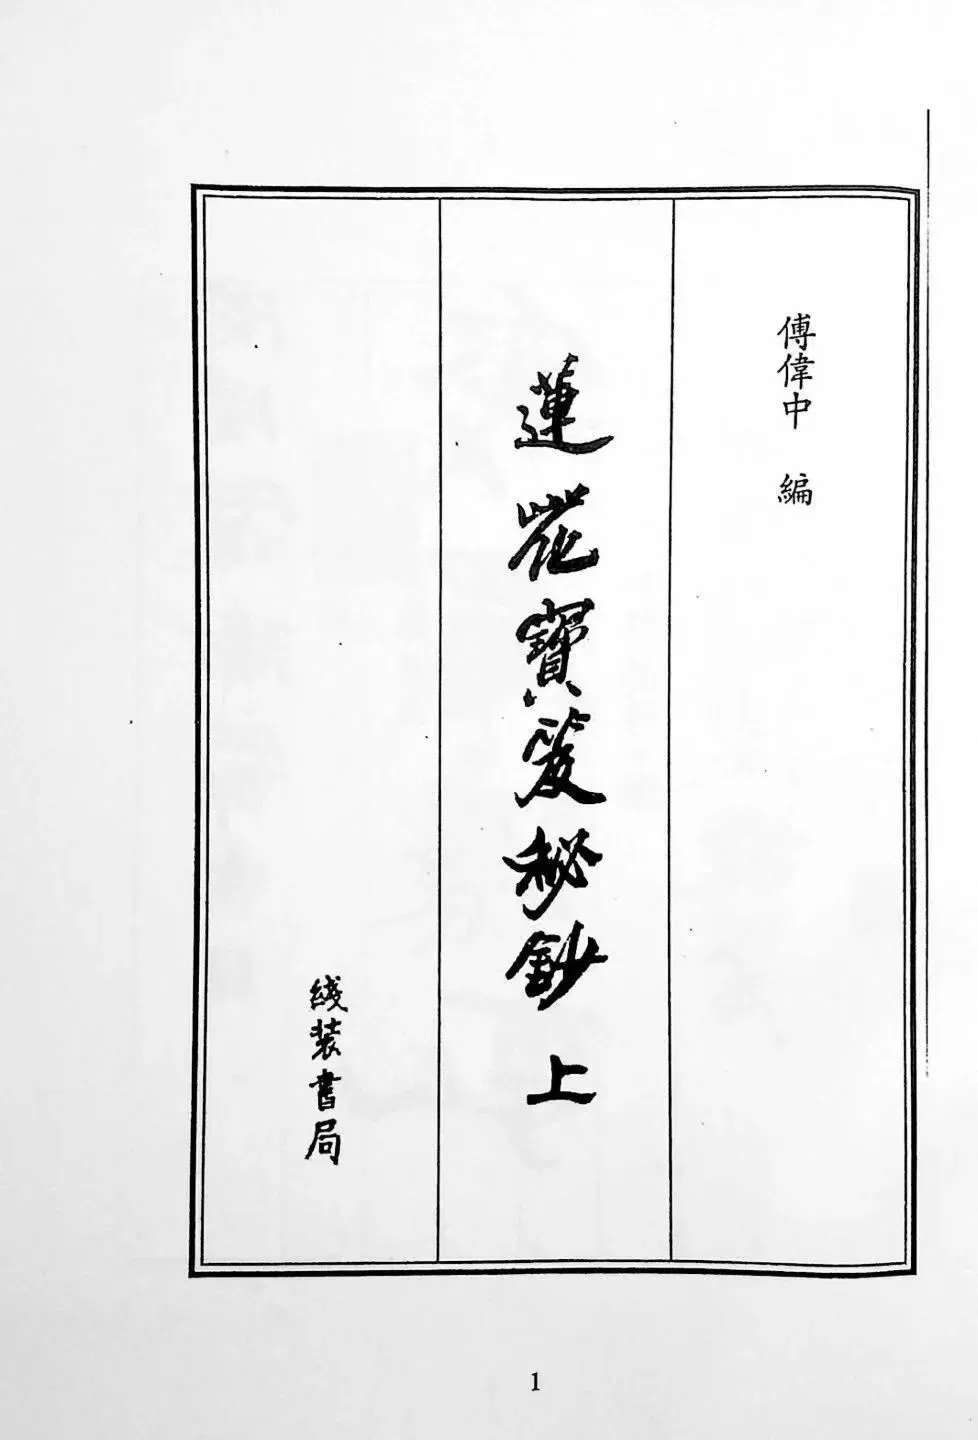 傅偉中 編
蓮花寶笈秘鈔 上
线装書局
1